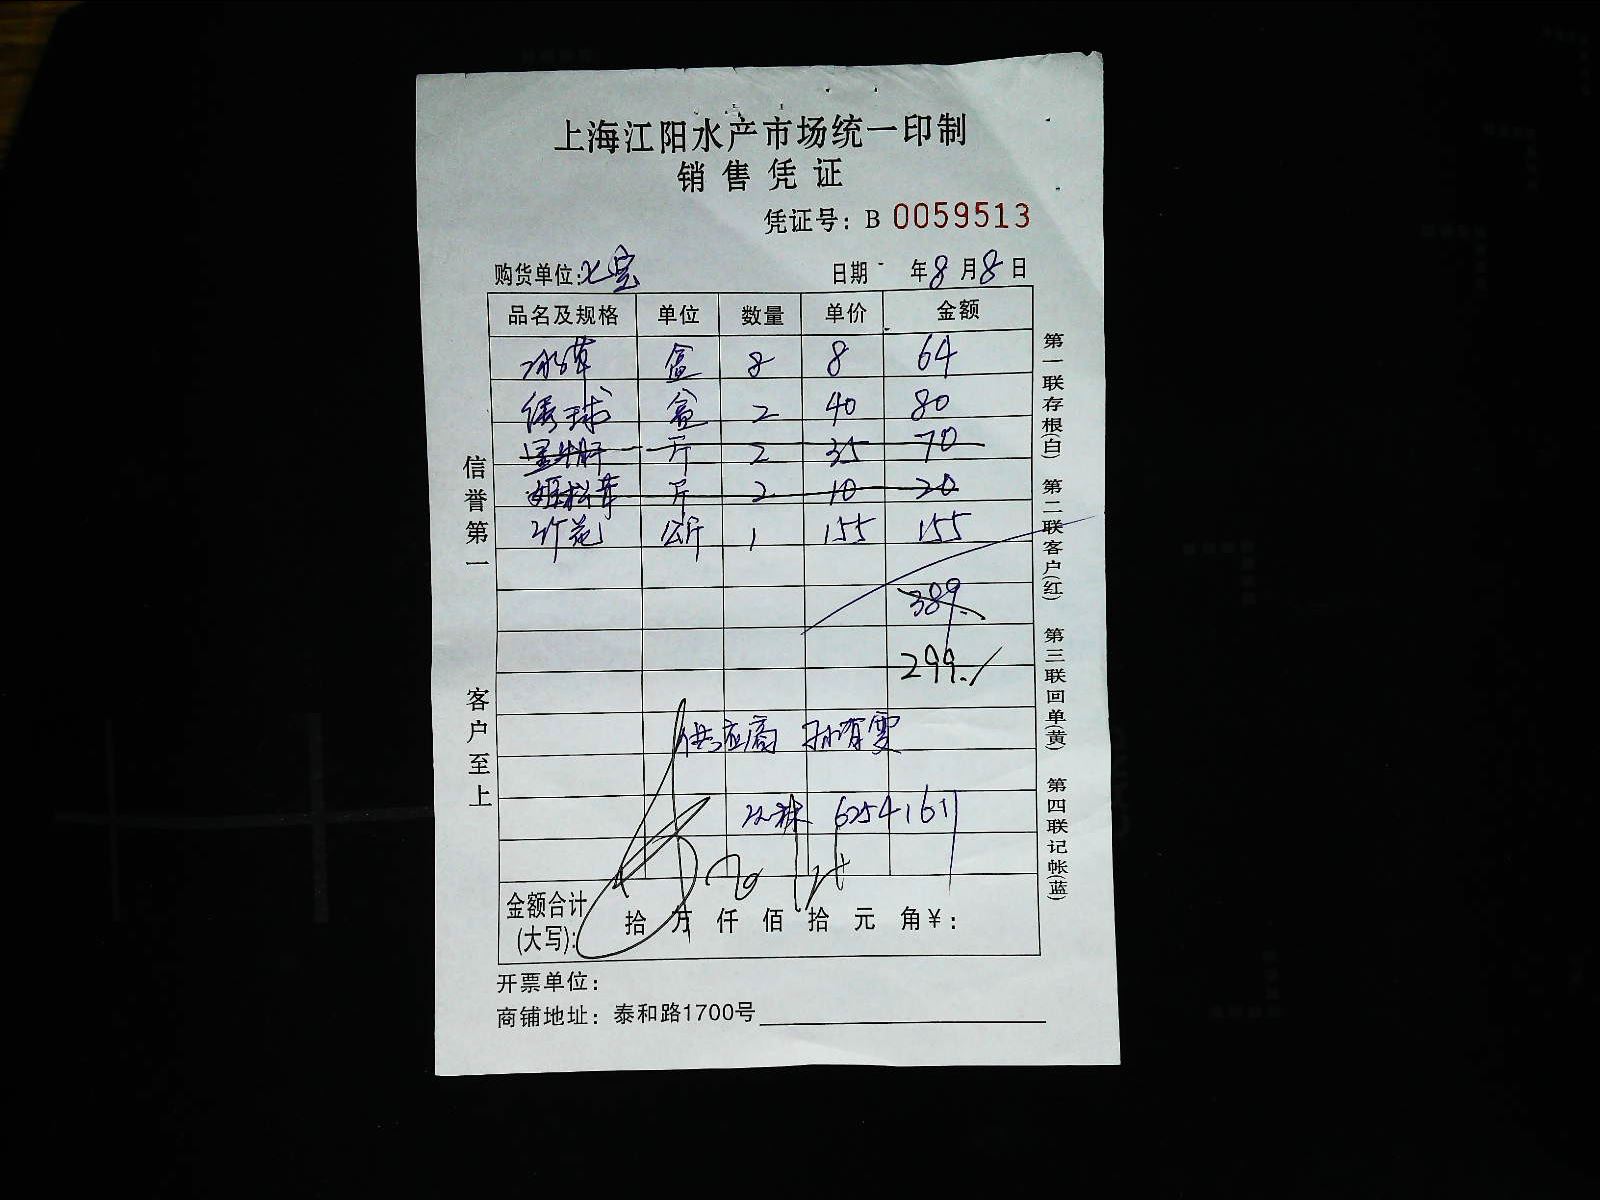 上海江阳水产市场统一印制
销售凭证
凭证号：B 0059513
购货单位：七宝
日期 年8月8日
品名及规格 单位 数量 单价 金额
冰草 盒 8 8 64
绣球 盒 2 40 80
黑牛肝 斤 2 35 70
姬松茸 斤 2 10 20
竹荪 公斤 1 155 155
389.
299./
供应商 孙有雯
6254161
金额合计(大写)： 拾 万 仟 佰 拾 元 角 ¥：
开票单位：
商铺地址：泰和路1700号
信誉第一
客户至上
第一联存根(白) 第二联客户(红) 第三联回单(黄) 第四联记帐(蓝)